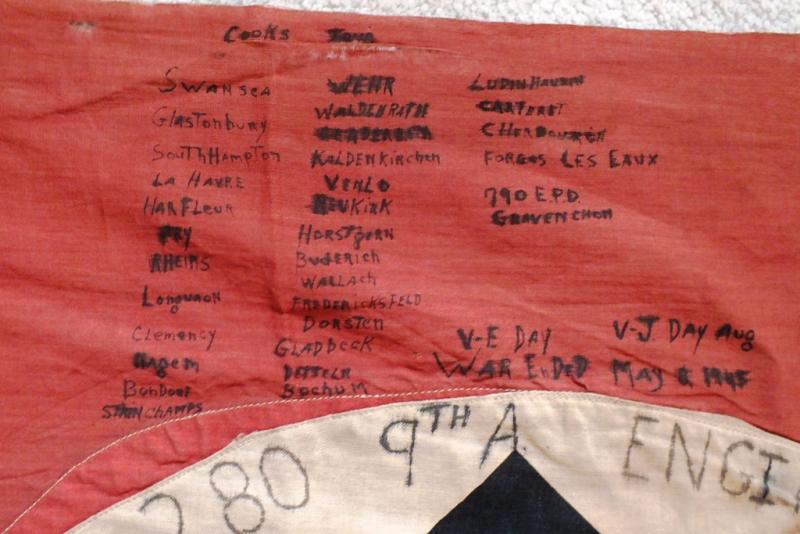 Cooks Tour
SWANSEA
GlasTonbury
SouTHHampTon
LA HAVRE
HARFLEUR
FRY
RHEIMS
Longuyon
Clemency
BONDORF
STAINCHAMPS
WEHR
WALDENRATH
KALDENKIRCHEN
VENLO
HORSTGERN
BUDERICH
WALLACH
FREDERICKSFELD
DORSTEN
GLADBECK
DATTELN
BOCHUM
CARTERET
CHERBOURGH
FORGES LES EAUX
790 E.P.D.
GRAVENCHON
V-E DAY
V-J. DAY Aug
WAR ENDED MAY 8 1945
280 9TH A. ENGI